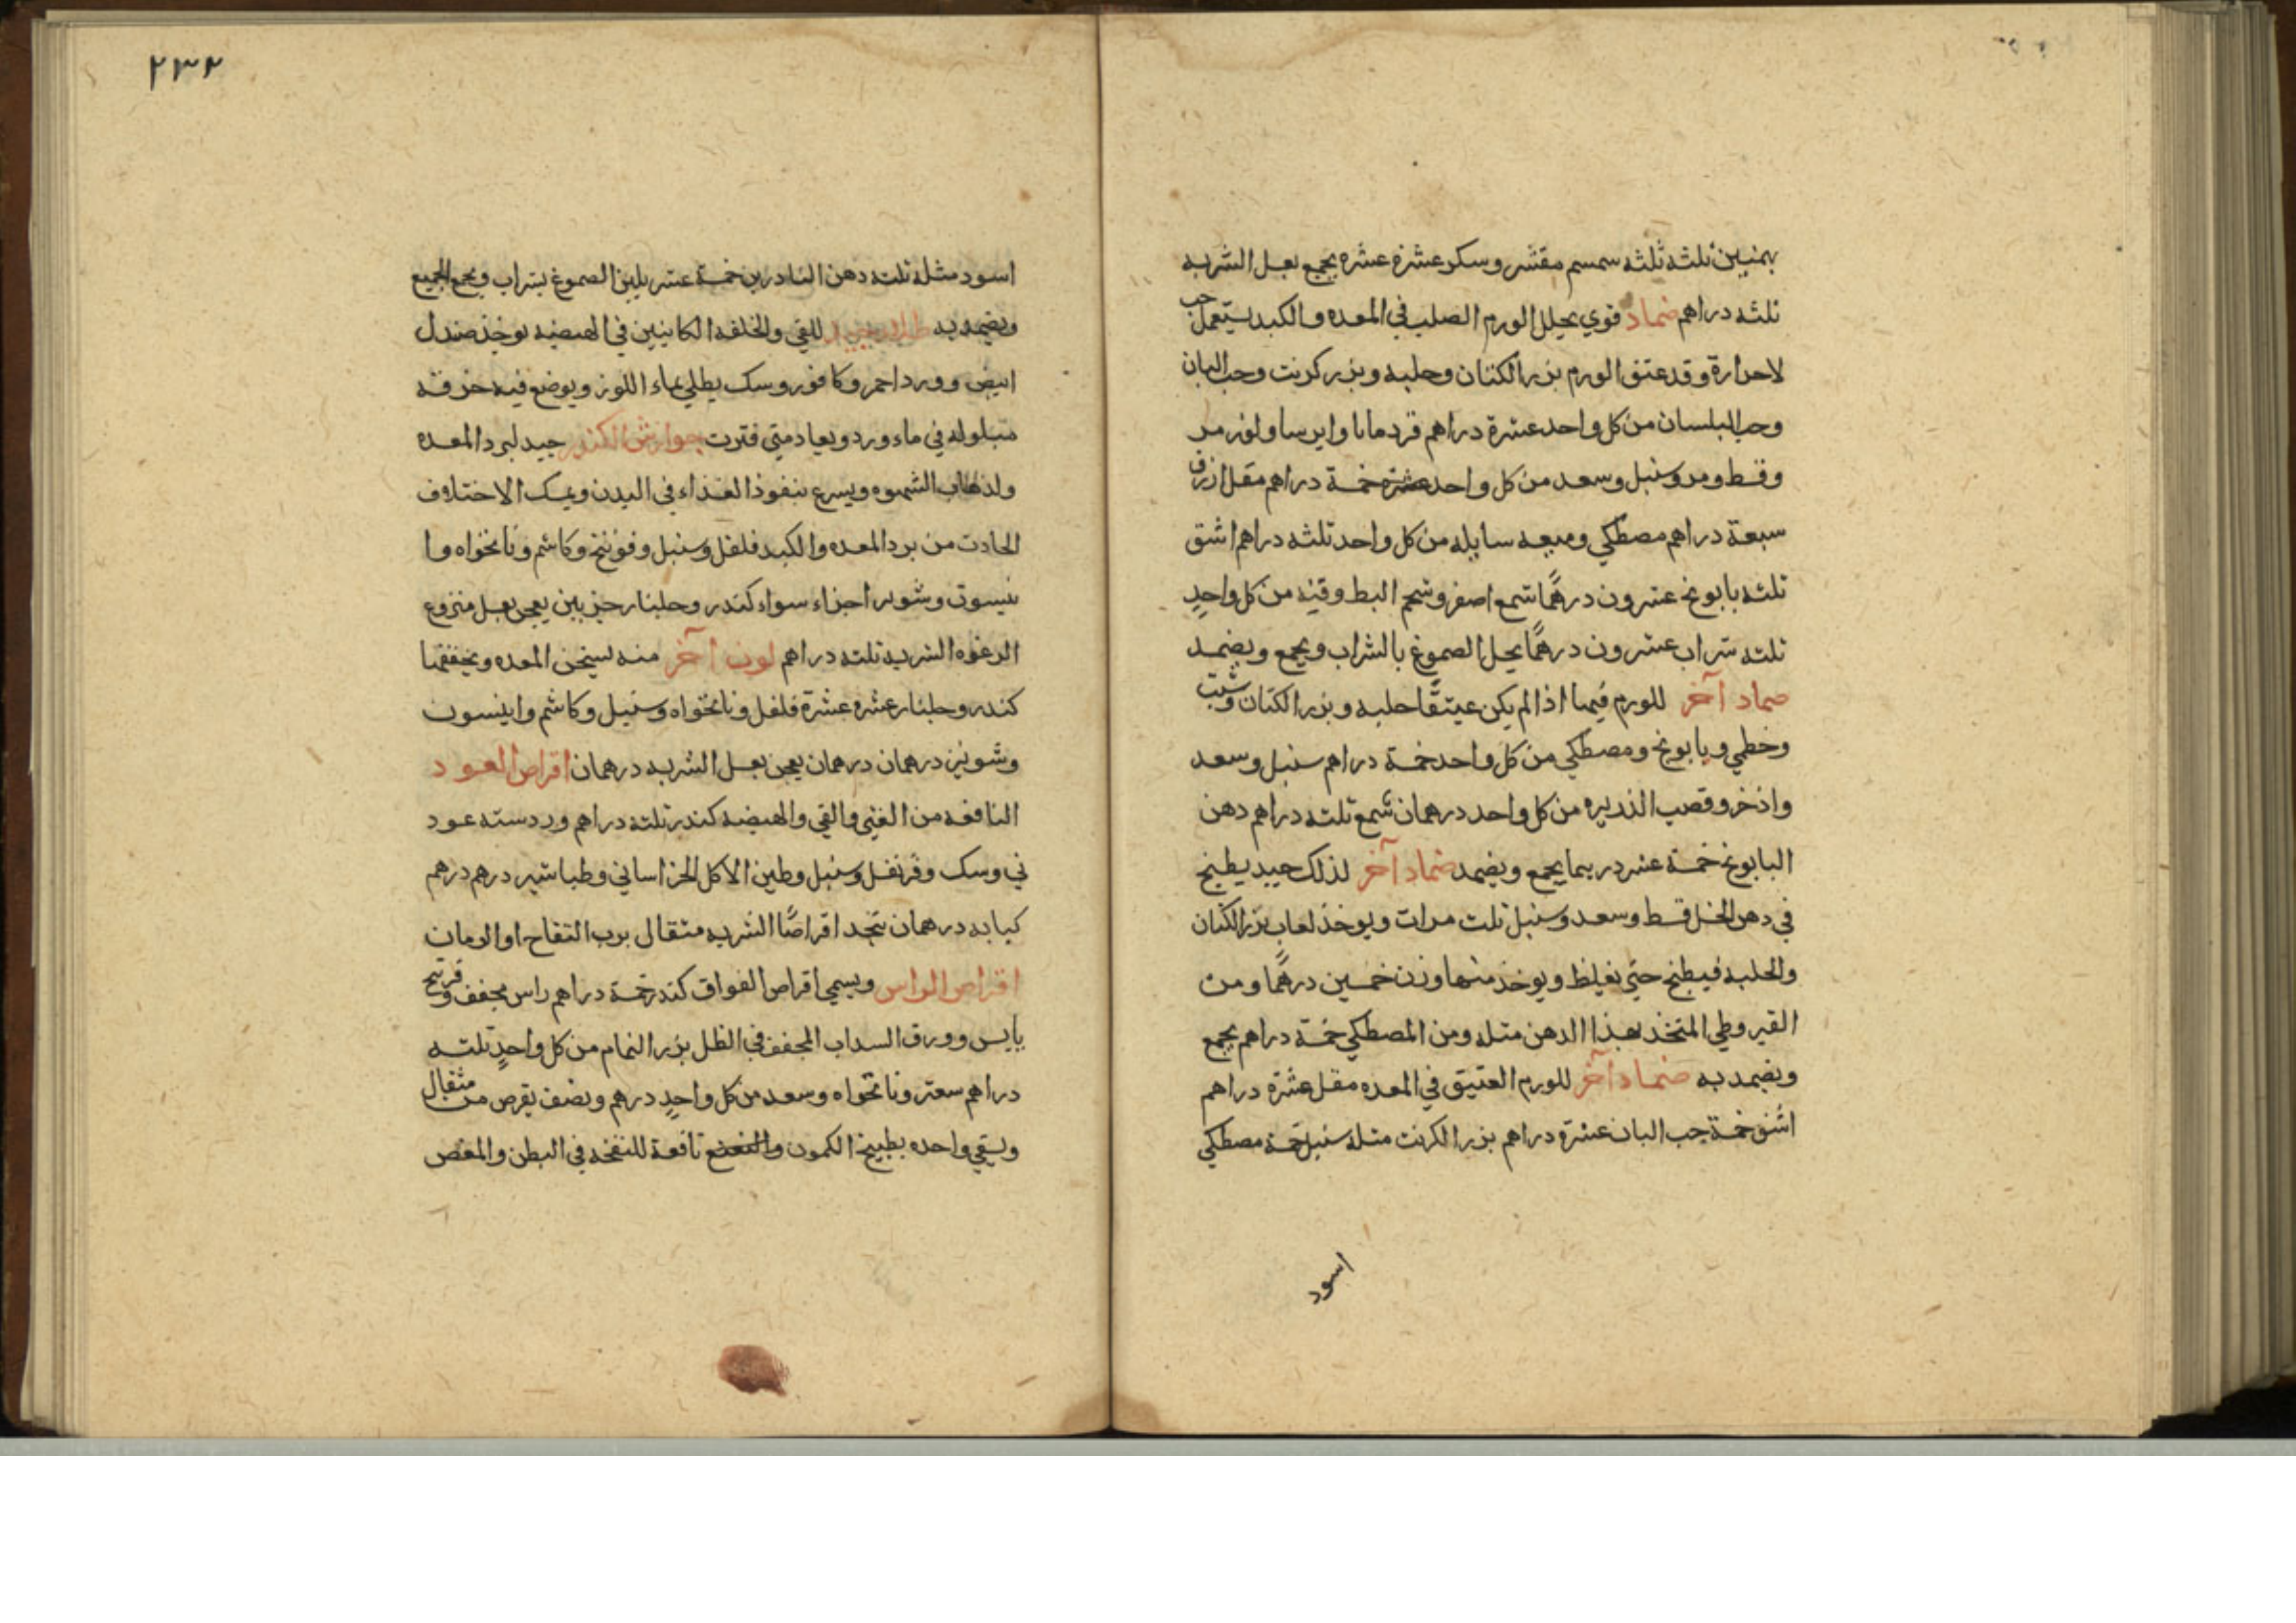 بهمنين ثلثه ثلثه سمسم مقشر وسكر عشره عشره يجمع بعسل الشربه
ثلثه دراهم ضماد قوي يحلل الورم الصلب في المعده والكبد يستعمل حب
لاحرارة وقد عتق الورم بزر الكتان وحلبه وبزر كرنب وحب البان
وحب البلسان من كل واحد عشرة دراهم قردمانا وايرسا ولوز مر
وقسط ومر وسنبل وسعد من كل واحد خمسة دراهم مقل ازرق
سبعة دراهم مصطكي وميعه سايله من كل واحد ثلثه دراهم اشق
ثلثه بابونج عشرون درهمًا شمع اصفر وشحم البط وقيه من كل واحدٍ
ثلثه شراب عشرون درهمًا يحل الصموغ بالشراب ويجمع ويضمد
ضماد آخر للورم فيما اذا لم يكن عتيقًا حلبه وبزر الكتان وشبت
وخطمي وبابونج ومصطكي من كل واحد خمسة دراهم سنبل وسعد
واذخر وقصب الذريره من كل واحد درهمان شمع ثلثه دراهم دهن
البابونج خمسة عشر درهما يجمع ويضمد ضماد آخر لذلك جيد يطبخ
في دهن الخل قسط وسعد وسنبل ثلث مرات ويوخذ لعاب بزر الكتان
والحلبه فيطبخ حتي يغلظ ويوخذ منها وزن خمسين درهمًا ومن
القيروطي المتخذ بهذا الدهن مثله ومن المصطكي خمسة دراهم يجمع
ويضمد به ضماد آخر للورم العتيق في المعده مقل عشرة دراهم
اشق خمسة حب البان عشرة دراهم بزر الكرنب مثله سنبل خمسة مصطكي
اسود
٢٣٢
اسود مثله ثلثه دهن الناردين خمسة عشر يلين الصموغ بشراب ويجمع الجميع
ويضمد به للقي والخلفه الكاينين في الهيضه يوخذ صندل
ابيض وورد احمر وكافور وسك يطلي بماء اللوز ويوضع فيه خرقه
مبلوله في ماء ورد ويعاد متي فترت جوارش الكندر جيد لبرد المعده
ولذهاب الشهوه ويسرع بنفوذ الغذاء في البدن ويمسك الاختلاف
الحادث من برد المعده والكبد فلفل وسنبل وفوتنج وكاشم ونانخواه وا
نيسون وشونيز اجزاء سواء كندر وجلنار جزين يعجن بعسل منزوع
الرغوه الشربه ثلثه دراهم لون آخر منه يسخن المعده ويجففها
كندر وجلنار عشره عشرة فلفل ونانخواه وسنبل وكاشم وانيسون
وشونيز درهمان درهمان يعجن بعسل الشربه درهمان اقراص العود
النافعه من الغثي والقي والهيضه كندر ثلثه دراهم ورد سته عود
ني وسك وقرنفل وسنبل وطين الاكل الخراساني وطباشير درهم درهم
كبابه درهمان يتخذ اقراصًا الشربه مثقال برب التفاح او الرمان
اقراص الراس ويسمي اقراص الفواق كندر خمسة دراهم راس مجفف وفوتنج
يابس وورق السداب المجفف في الظل بزر النمام من كل واحدٍ ثلثه
دراهم سعتر ونانخواه وسعد من كل واحدٍ درهم ونصف يقرص من مثقال
ويسقي واحده بطبيخ الكمون والنعنع نافعة للنفخه في البطن والمغص